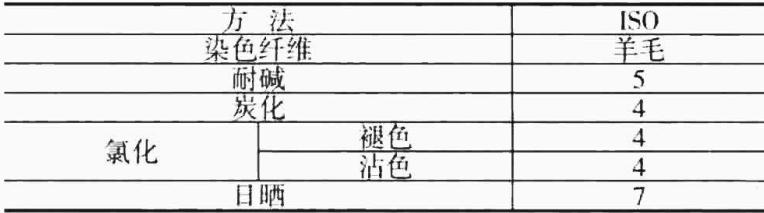 方 法 ISO
染色纤维 羊毛
耐碱 5
炭化 4
氯化 褪色 4
沾色 4
日晒 7